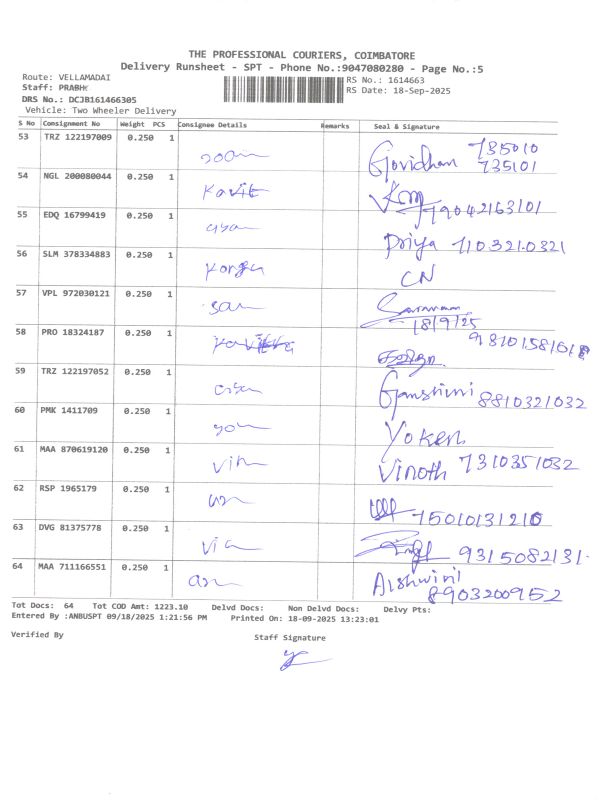 THE PROFESSIONAL COURIERS, COIMBATORE
Delivery Runsheet - SPT - Phone No.:9047080280 - Page No.:5
Route: VELLAMADAI
RS No.: 1614663
Staff: PRABHU
RS Date: 18-Sep-2025
DRS No.: DCJB161466305
Vehicle: Two Wheeler Delivery
S No Consignment No Weight PCS Consignee Details Remarks Seal & Signature
53 TRZ 122197009 0.250 1 Govidhan 735010
735101
54 NGL 200080044 0.250 1 Kavit 79042163101
55 EDQ 16799419 0.250 1 Priya 7103210321
56 SLM 378334883 0.250 1 Kongu CN
57 VPL 972030121 0.250 1 San Saravanan
18/9/25
58 PRO 18324187 0.250 1
59 TRZ 122197052 0.250 1 Ganshini 8810321032
60 PMK 1411709 0.250 1 Yoken
61 MAA 870619120 0.250 1 Vinoth 7310351032
62 RSP 1965179 0.250 1 75010131210
63 DVG 81375778 0.250 1 9315082131
64 MAA 711166551 0.250 1 Aishwini
8903200952
Tot Docs: 64 Tot COD Amt: 1223.10 Delvd Docs: Non Delvd Docs: Delvy Pts:
Entered By :ANBUSPT 09/18/2025 1:21:56 PM Printed On: 18-09-2025 13:23:01
Verified By Staff Signature